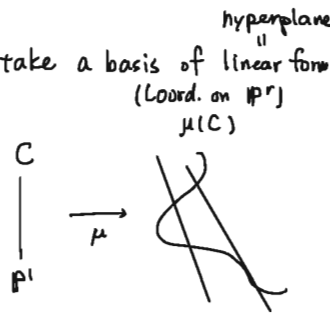 hyperplane
=
take a basis of linear form
(Coord. on ℙʳ)
μ(C)
C
μ
ℙ¹